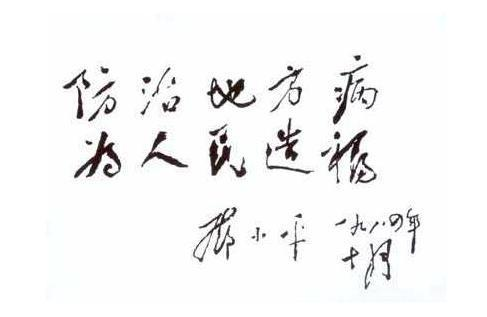 防治地方病
为人民造福
邓小平 一九八四年
十月